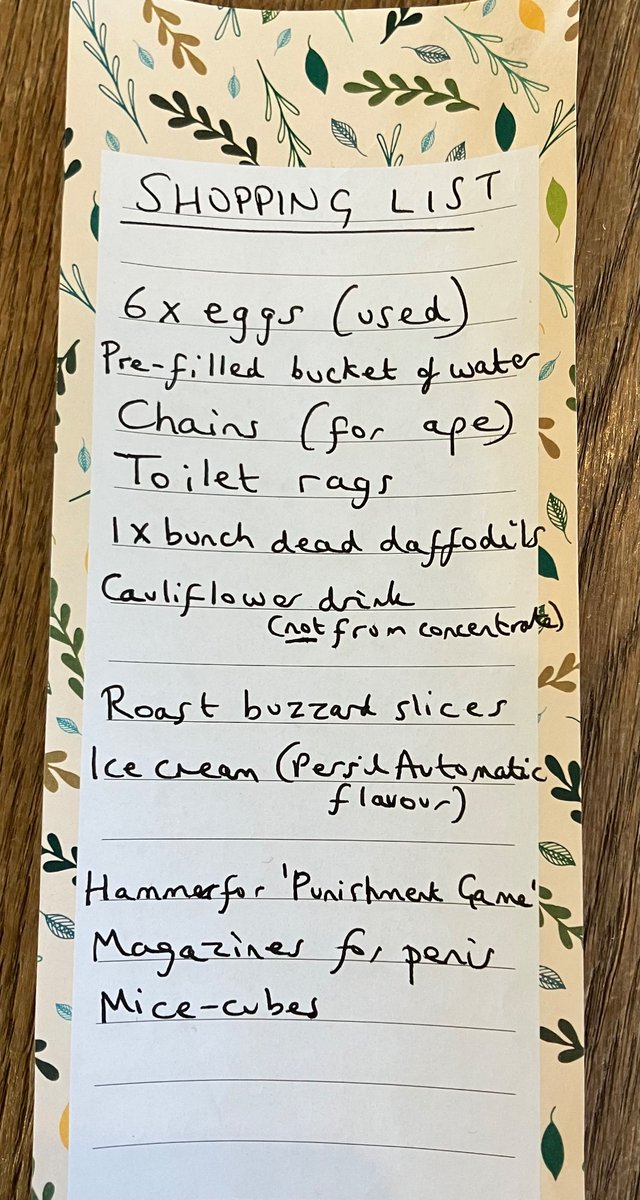 SHOPPING LIST
6 x eggs (used)
Pre-filled bucket of water
Chains (for ape)
Toilet rags
1 x bunch dead daffodils
Cauliflower drink
(not from concentrate)
Roast buzzard slices
Ice cream (Persil Automatic
flavour)
Hammer for 'Punishment Game'
Magazines for penis
Mice-cubes